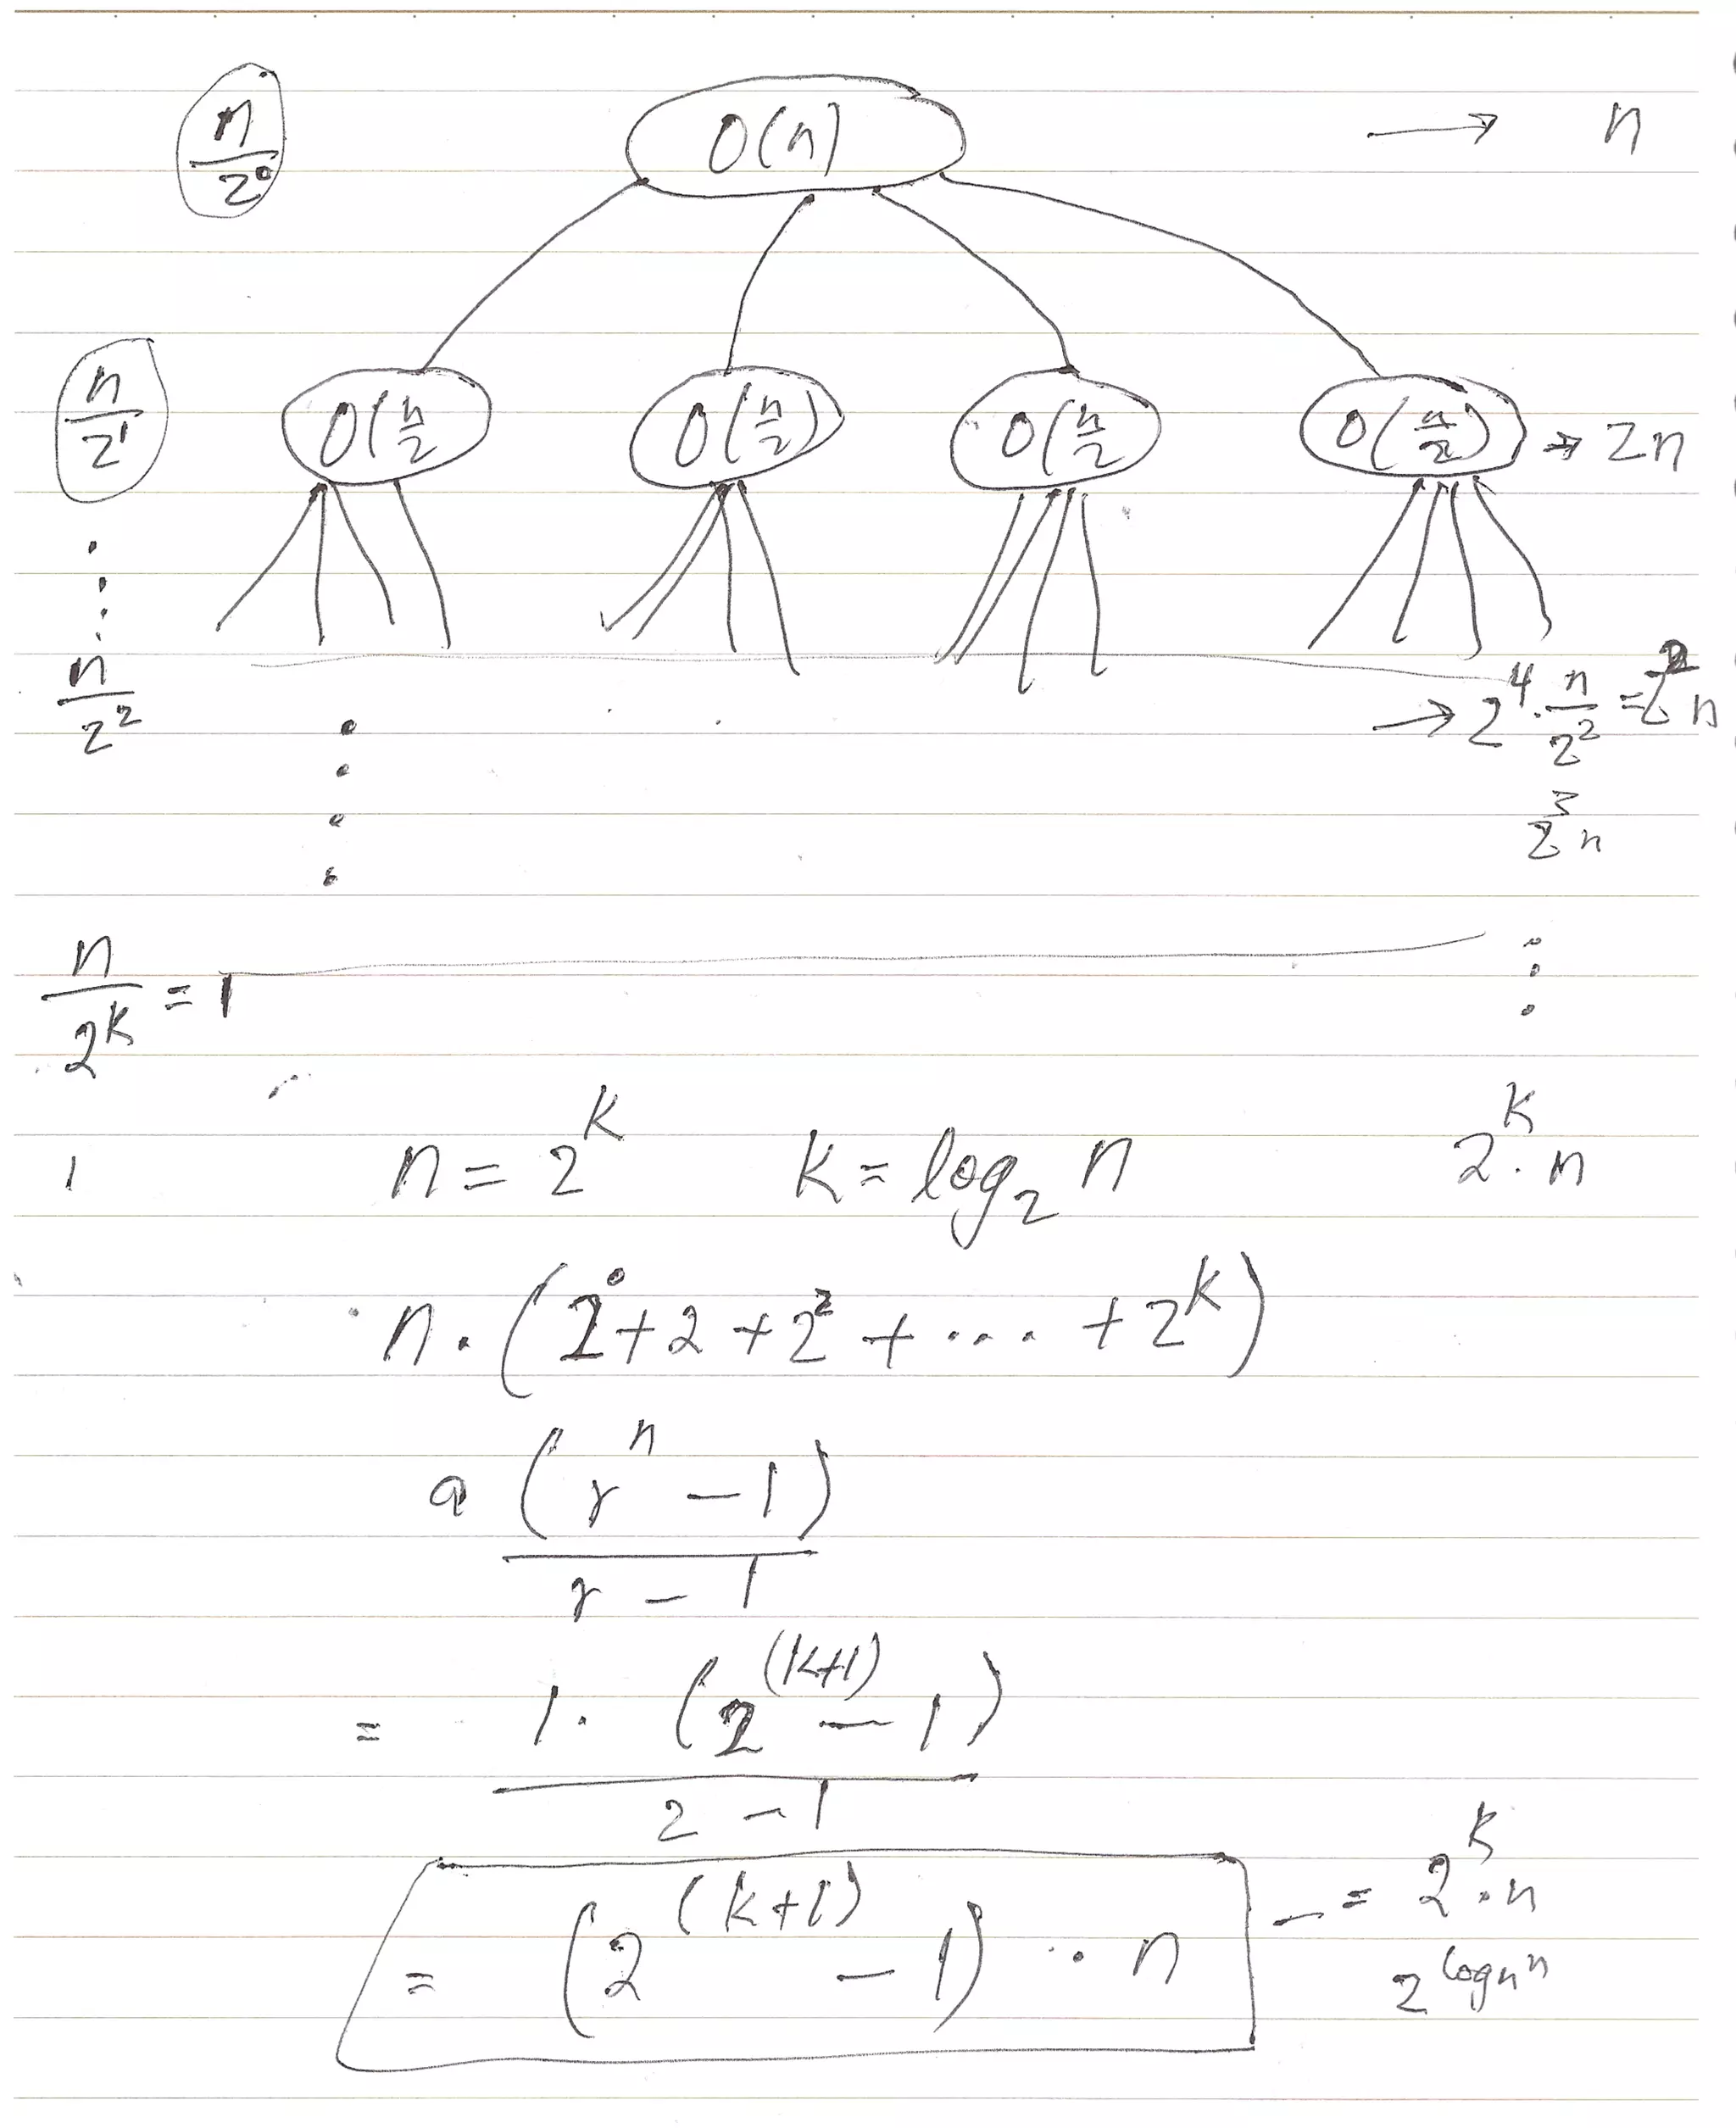 n/2⁰ O(n) → n
n/2¹ O(n/2 O(n/2) O(n/2 O(n/2) → 2n
n/2² → 2⁴ · n/2² = 2² n
2³ n
n/2ᵏ = 1
1 n = 2ᵏ k = log₂ n 2ᵏ · n
n · (2⁰ + 2 + 2² + ... + 2ᵏ)
a (rⁿ − 1)
r − 1
= 1 · (2⁽ᵏ⁺¹⁾ − 1)
2 − 1
= (2⁽ᵏ⁺¹⁾ − 1) · n − = 2ᵏ · n
2^(log n n)